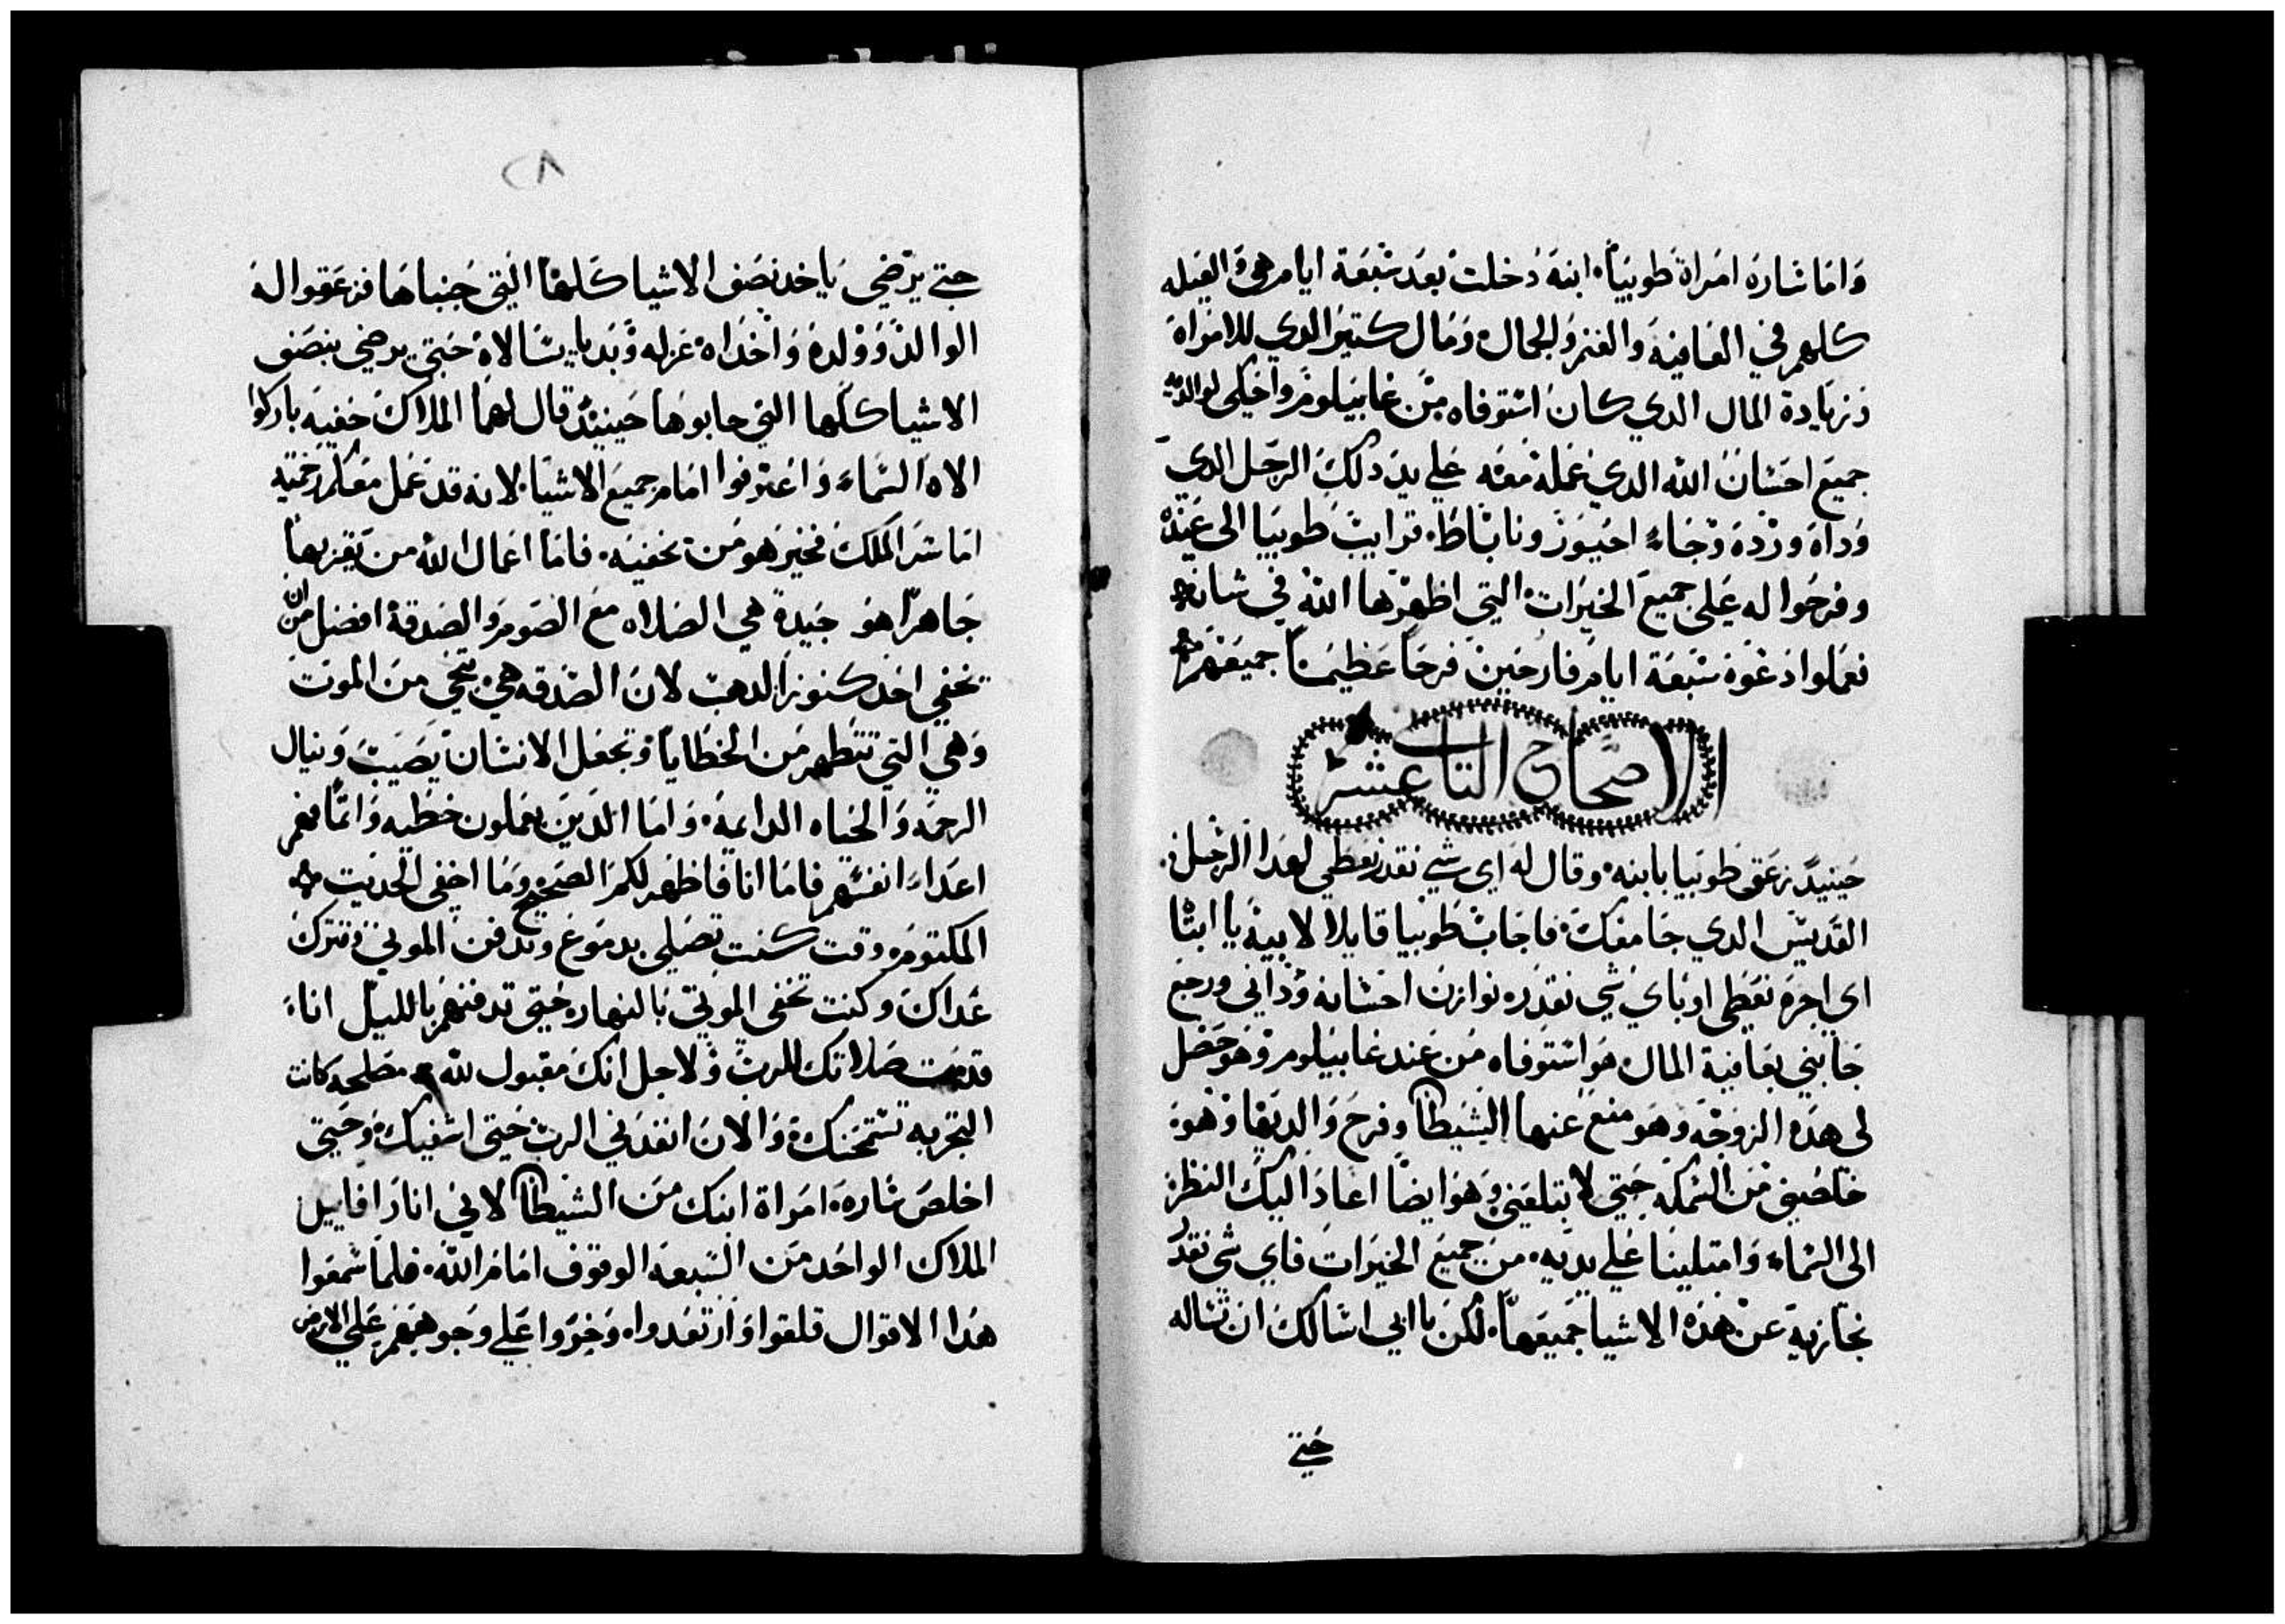 واما ساره امراة طوبيا ابنه دخلت بعد سبعة ايام هي والعيله
كلهم في العافيه والغنم والجمال ومال كتير الدي للامراة
وزيادة المال الدي كان استوفاه من غابيلوم واحكي لوالديه
جميع احسان الله الدي عمله معه علي يد دلك الرجل الدي
وداه وردة وجاء احيور وناباط قرايب طوبيا الى عنده
وفرحوا له على جميع الخيرات التي اظهرها الله في شانه
فعملوا دعوة سبعة ايام فارحين فرحا عظيما جميعهم
الاصحاح التاني عشر
حينيد زعق طوبيا بابنه وقال له اي شي نقدر نعطي لهدا الرجل
القديس الدي جا معك فاجاب طوبيا قايلا لابيه يا ابتا
اي اجره نعطي او باي شي نقدر نوازن احسانه وداني ورجع
جابني بعافية المال هو استوفاه من عند غابيلوم وهو حصل
لي هده الزوجه وهو منع عنها الشيطان وفرح والديها وهو
خلصني من السمكه حتي لا تبتلعني وهو ايضا اعاد اليك النظر
الى السماء وامتلينا علي يديه من جميع الخيرات فاي شي نقدر
نجازيه عن هده الاشيا جميعها لكن يا ابي اسالك ان تساله
حتي
٢٨
حتي يرضي ياخد نصف الاشيا كلها التي جبناها فزعقوا له
الوالد وولده واخداه عزله وبديا يسالاه حتي يرضي بنصف
الاشيا كلها التي جابوها حينيد قال لهما الملاك خفيه باركوا
الاه السماء واعترفوا امام جميع الاشيا لانه قد عمل معكم رحمته
اما سر الملك فخير هو من يخفيه فاما اعمال الله من يقربها
جاهرا هو جيدة هي الصلاه مع الصوم والصدقة افضل من ان
تخفي احد كنوز الدهب لان الصدقه هي تنجي من الموت
وهي التي تتطهر من الخطايا وتجعل الانسان يصيب وينال
الرحمه والحياه الدايمة واما الدين يعملون خطيه واتما فهم
اعداء انفسهم فاما انا فاظهر لكم الصحيح وما اخفي الحديت
المكتوم وقت كنت تصلي بدموع وتدفن الموتي وتترك
غداك وكنت تخفي الموتي بالنهار حتي تدفنهم بالليل اناء
قدمت صلاتك للرب ولاجل انك مقبول لله مصلحه كانت
التجربه تستمحنك والان انفدني الرب حتي اشفيك وحتي
اخلص ساره امراة ابنك من الشيطان لاني انا رافاييل
الملاك الواحد من السبعه الوقوف امام الله فلما سمعوا
هدا الاقوال قلقوا وارتعدوا وخروا علي وجوههم علي الارض